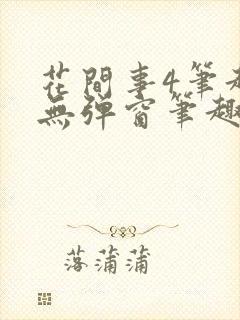 花間事4筆趣
無彈窗筆趣
落蒲蒲